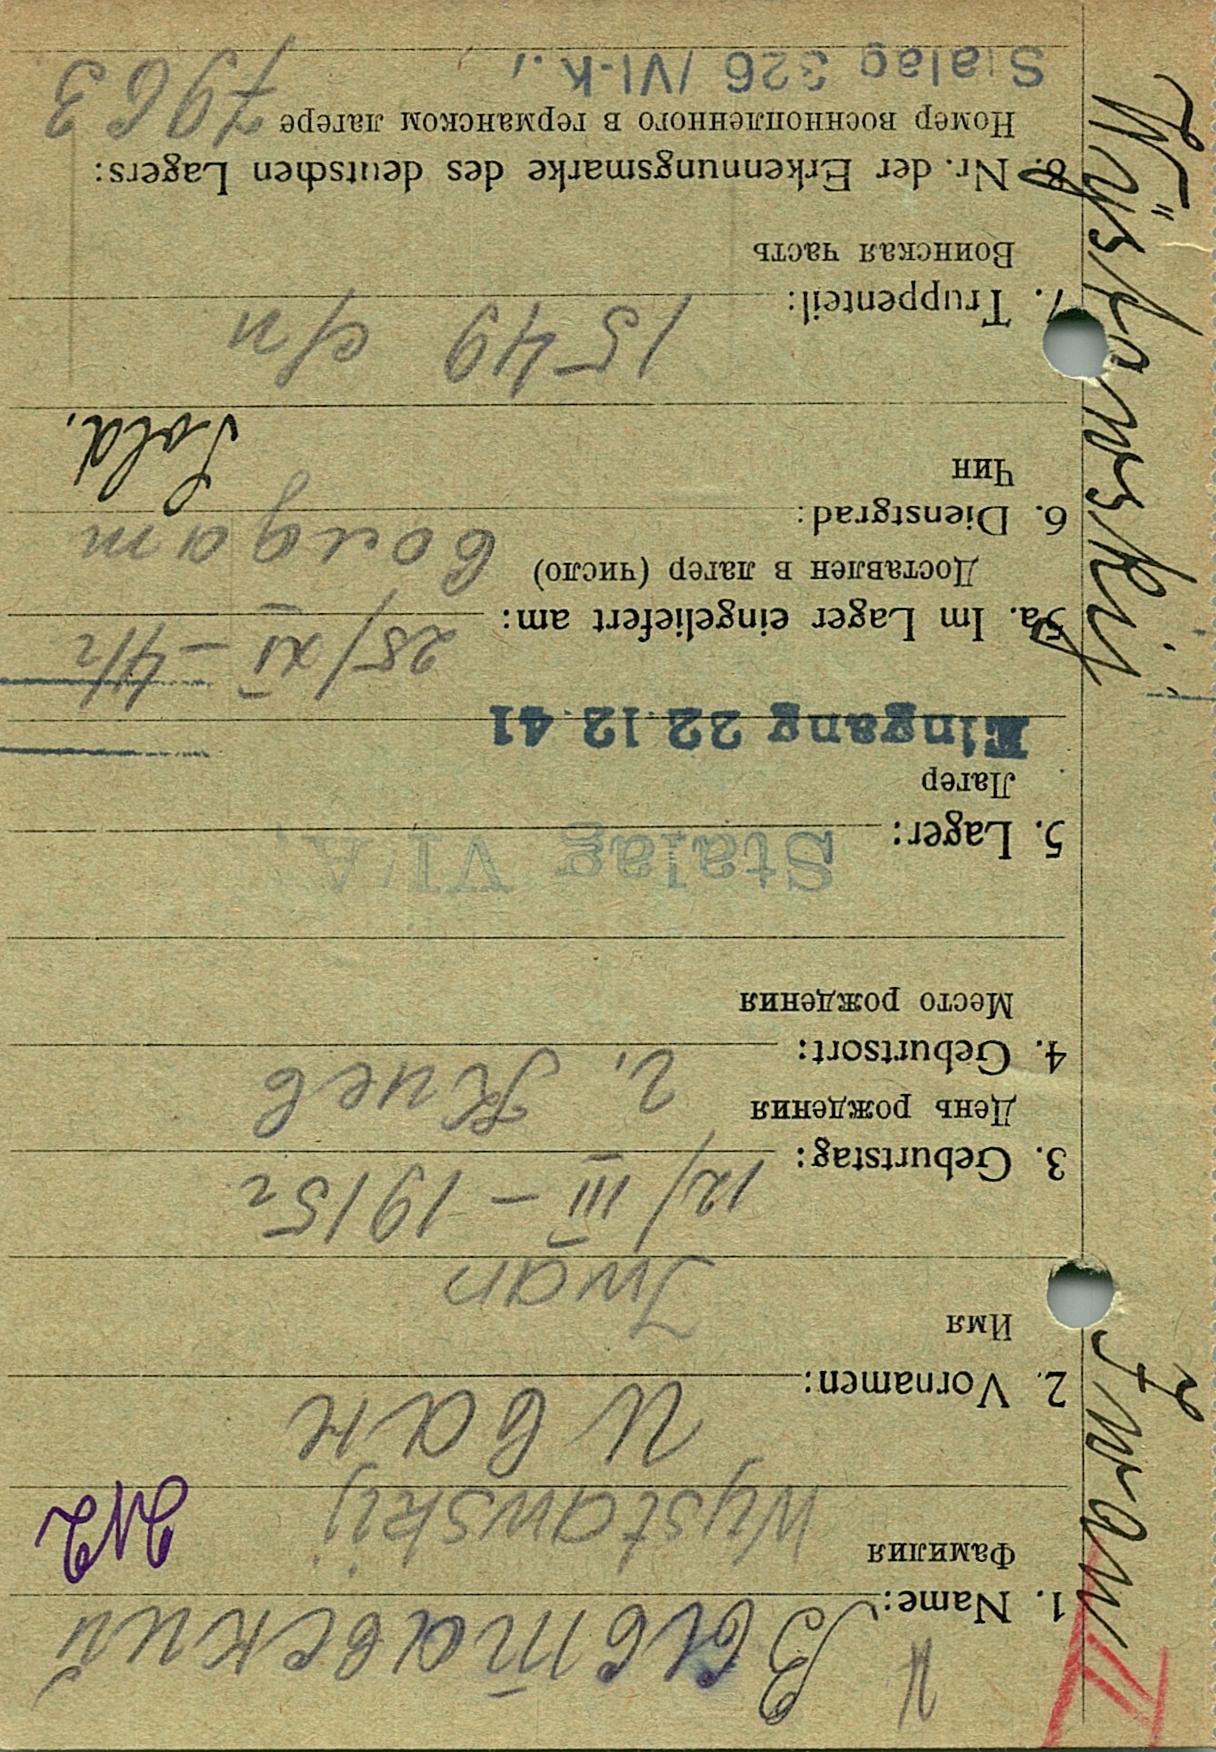 Выставский
1. Name:
Фамилия
Wystawskij
Иван
2. Vornamen:
Имя
Iwan
12/III – 1915 г
3. Geburtstag:
День рождения
г. Киев
4. Geburtsort:
Место рождения
Stalag VI A.
5. Lager:
Лагер
Eingang 22.12.41
25/XI – 41 г
5a. Im Lager eingeliefert am:
Доставлен в лагер (число)
солдат
6. Dienstgrad:
Чин
Sold.
1549 с/п
7. Truppenteil:
Воинская часть
8. Nr. der Erkennungsmarke des deutschen Lagers:
Номер военнопленного в германском лагере 7963
Stalag 326 /VI-K.,
Iwan